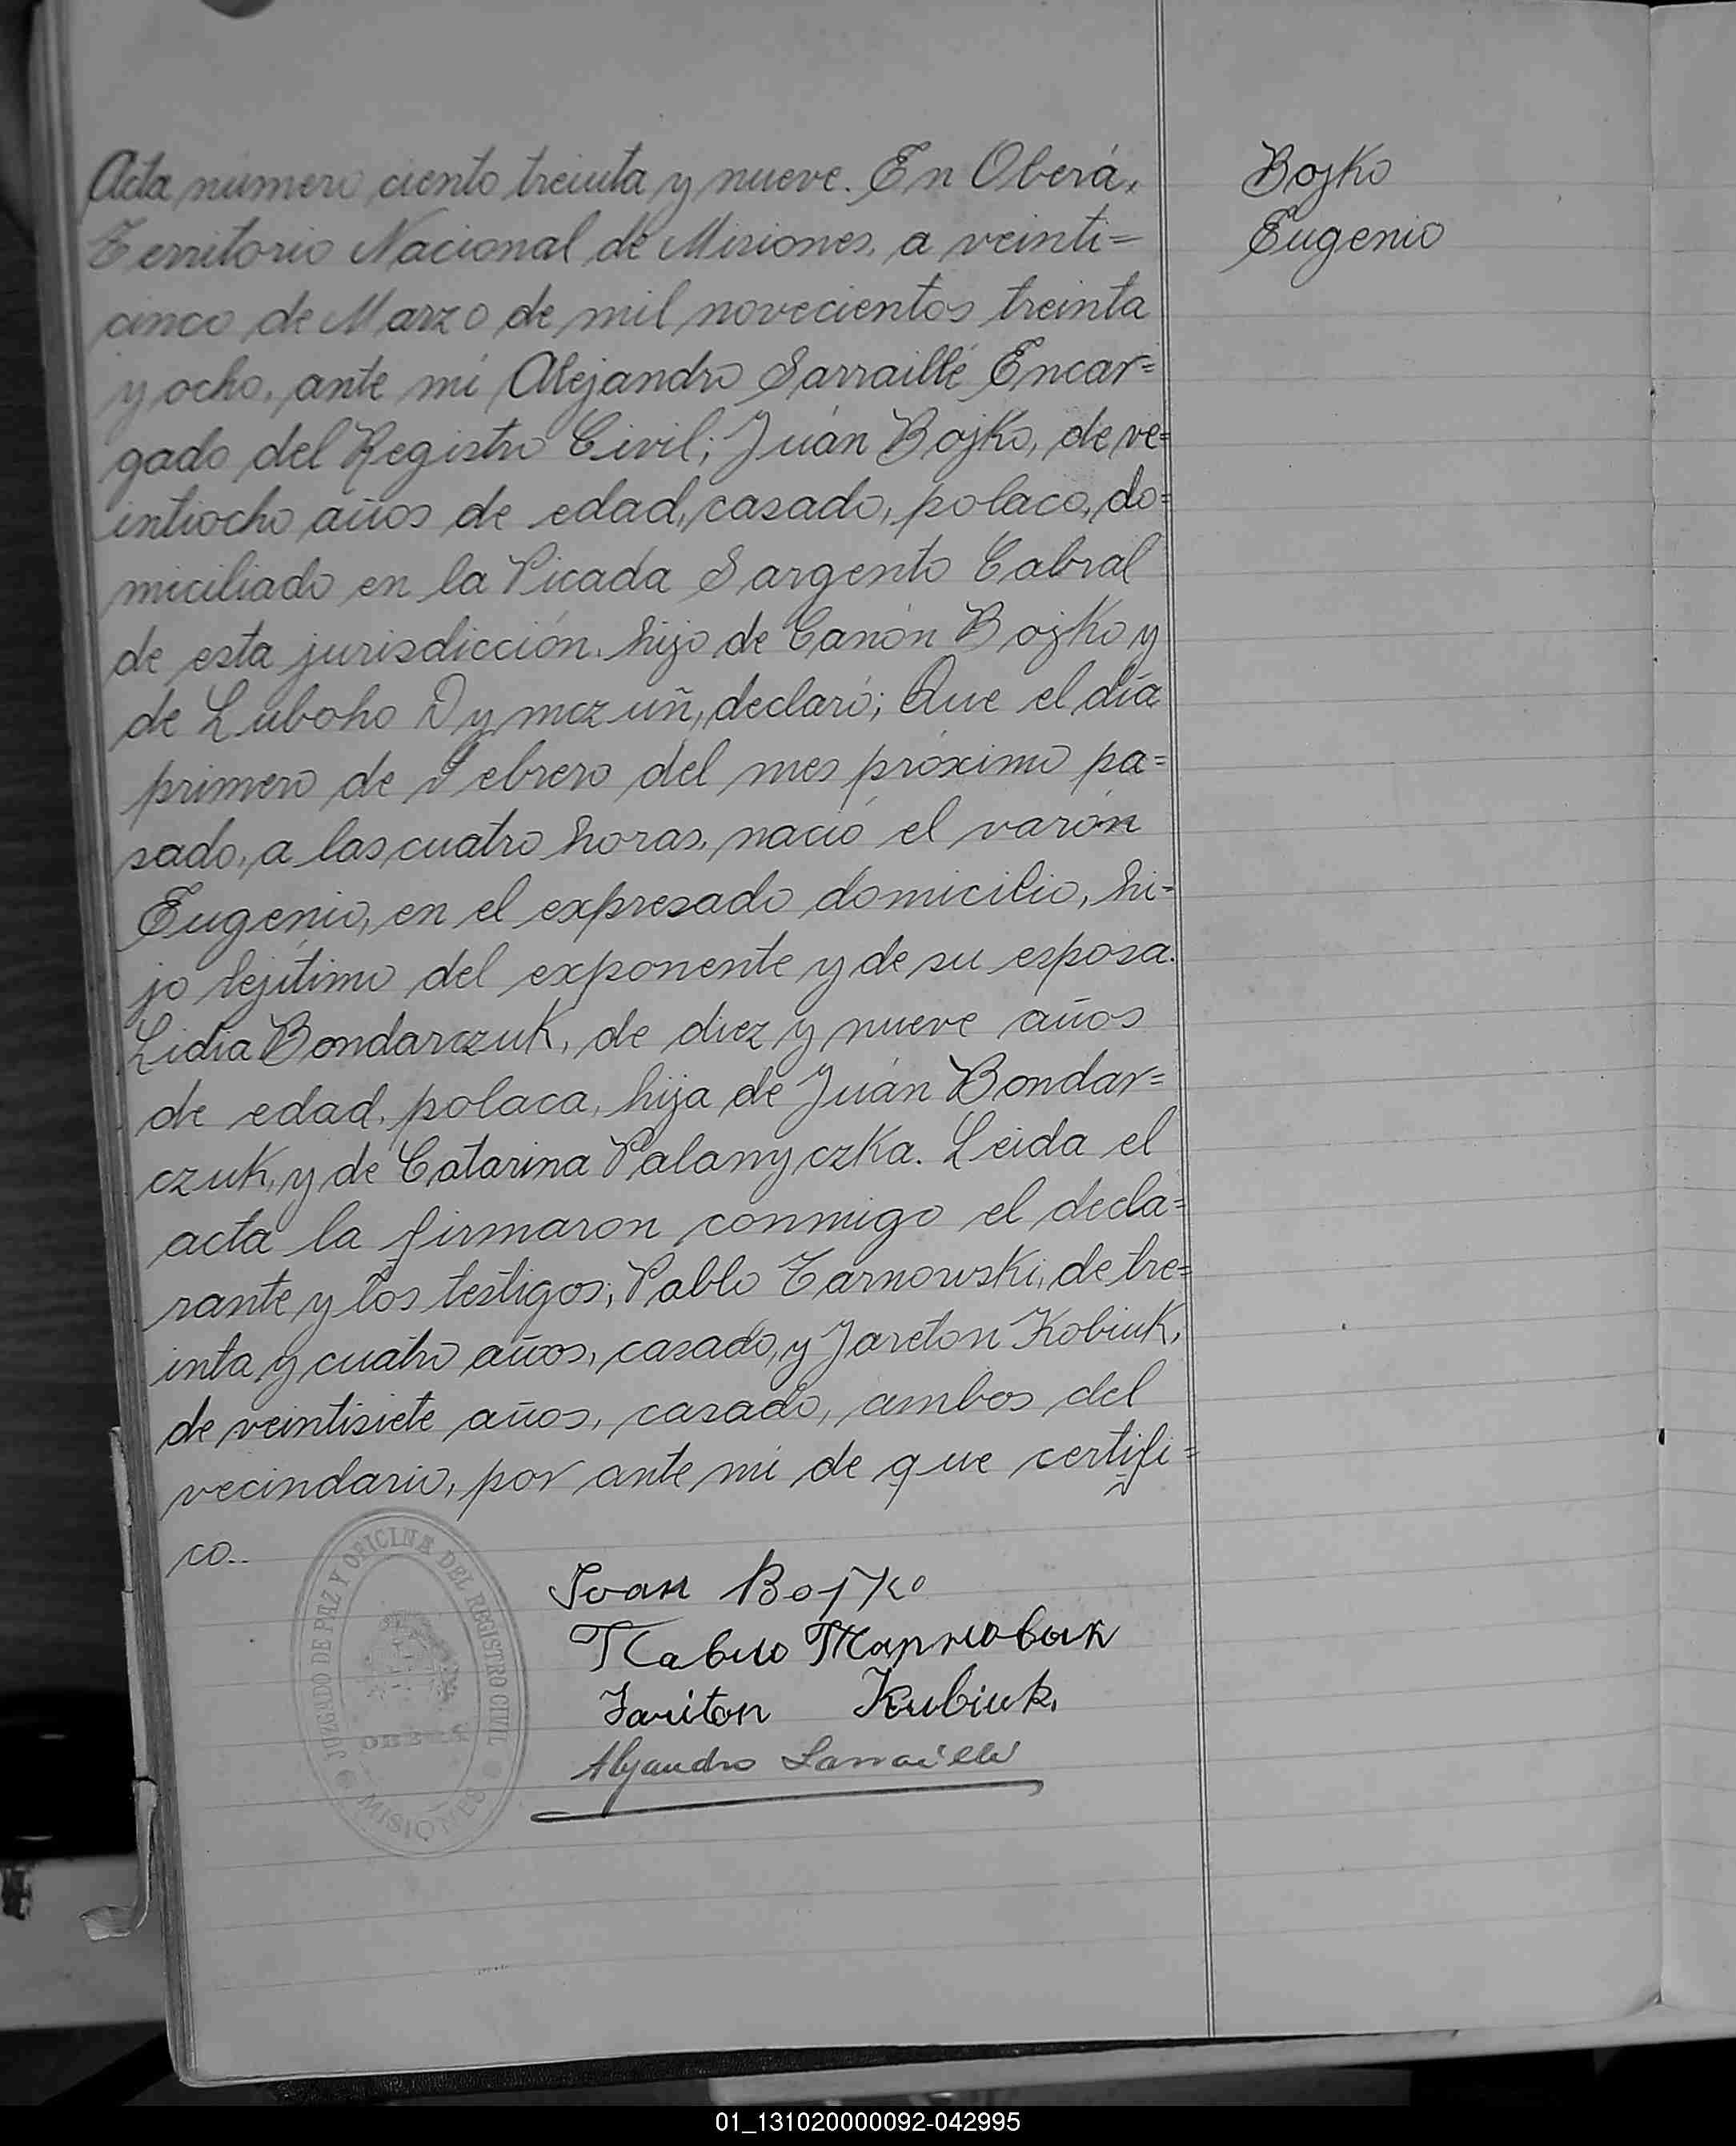 Acta número ciento treinta y nueve. En Oberá,
Territorio Nacional de Misiones, a veinti=
cinco de Marzo de mil novecientos treinta
y ocho, ante mí Alejandro Sarraillé Encar=
gado del Registro Civil; Juán Bojko, de ve=
intiocho años de edad, casado, polaco, do=
miciliado en la Picada Sargento Cabral
de esta jurisdicción, hijo de Canón Bojko y
de Luboho Dymczuñ, declaró; Que el día
primero de Febrero del mes próximo pa=
sado, a las cuatro horas, nació el varón
Eugenio, en el expresado domicilio, hi=
jo lejítimo del exponente y de su esposa
Lidia Bondarczuk, de diez y nueve años
de edad, polaca, hija de Juán Bondar=
czuk, y de Catarina Palanyczka. Leida el
acta la firmaron conmigo el decla=
rante y los testigos; Pablo Tarnowski, de tre=
inta y cuatro años, casado, y Jareton Kobiuk,
de veintisiete años, casado, ambos del
vecindario, por ante mí de que certifi=
co..
Bojko
Eugenio
JUZGADO DE PAZ Y OFICINA DEL REGISTRO CIVIL
OBERÁ
MISIONES
Iван Bojko
Павло Тарновск
Jariton Kubiuk.
Alejandro Sarraillé
01_131020000092-042995